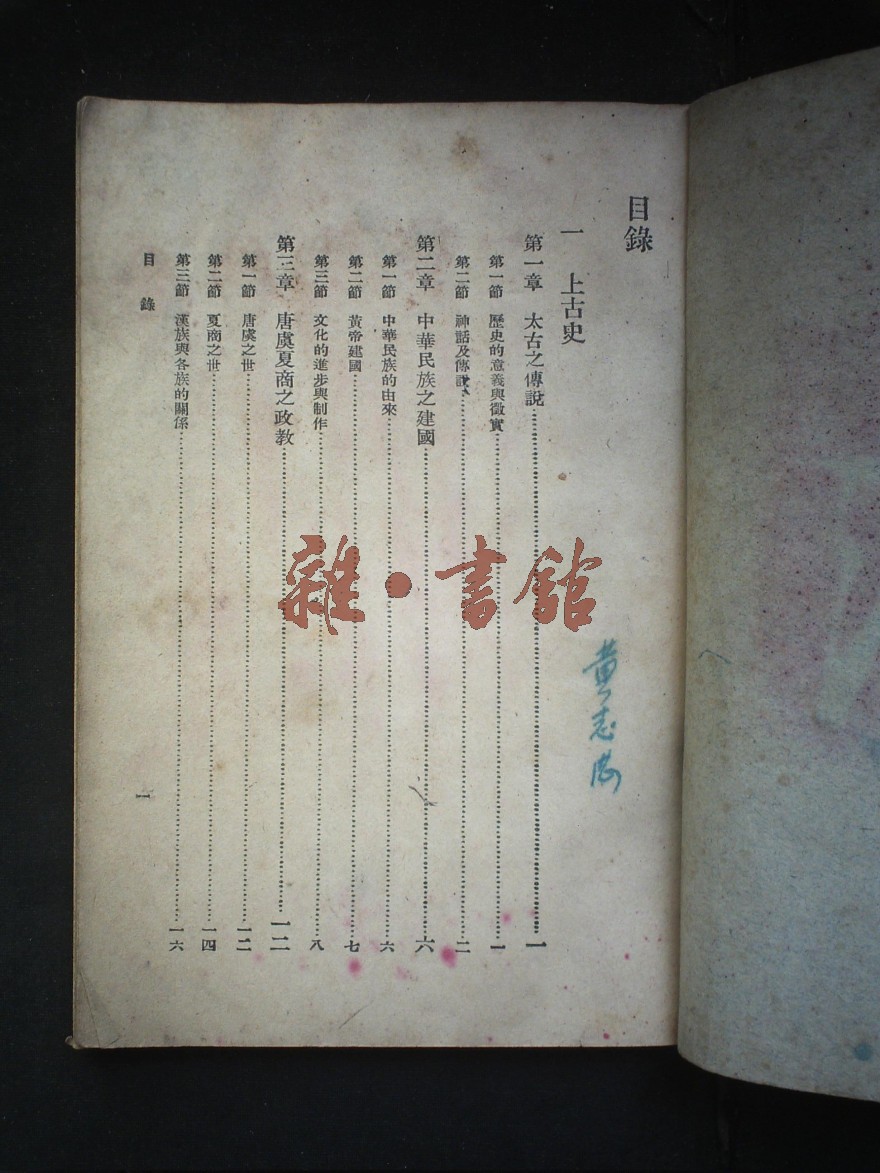 目錄
一 上古史
第一章 太古之傳說……一
第一節 歷史的意義與徵實……一
第二節 神話及傳說……二
第二章 中華民族之建國……六
第一節 中華民族的由來……六
第二節 黃帝建國……七
第三節 文化的進步與制作……八
第三章 唐虞夏商之政教……一二
第一節 唐虞之世……一二
第二節 夏商之世……一四
第三節 漢族與各族的關係……一六
目錄 一
黃志
雜·書館